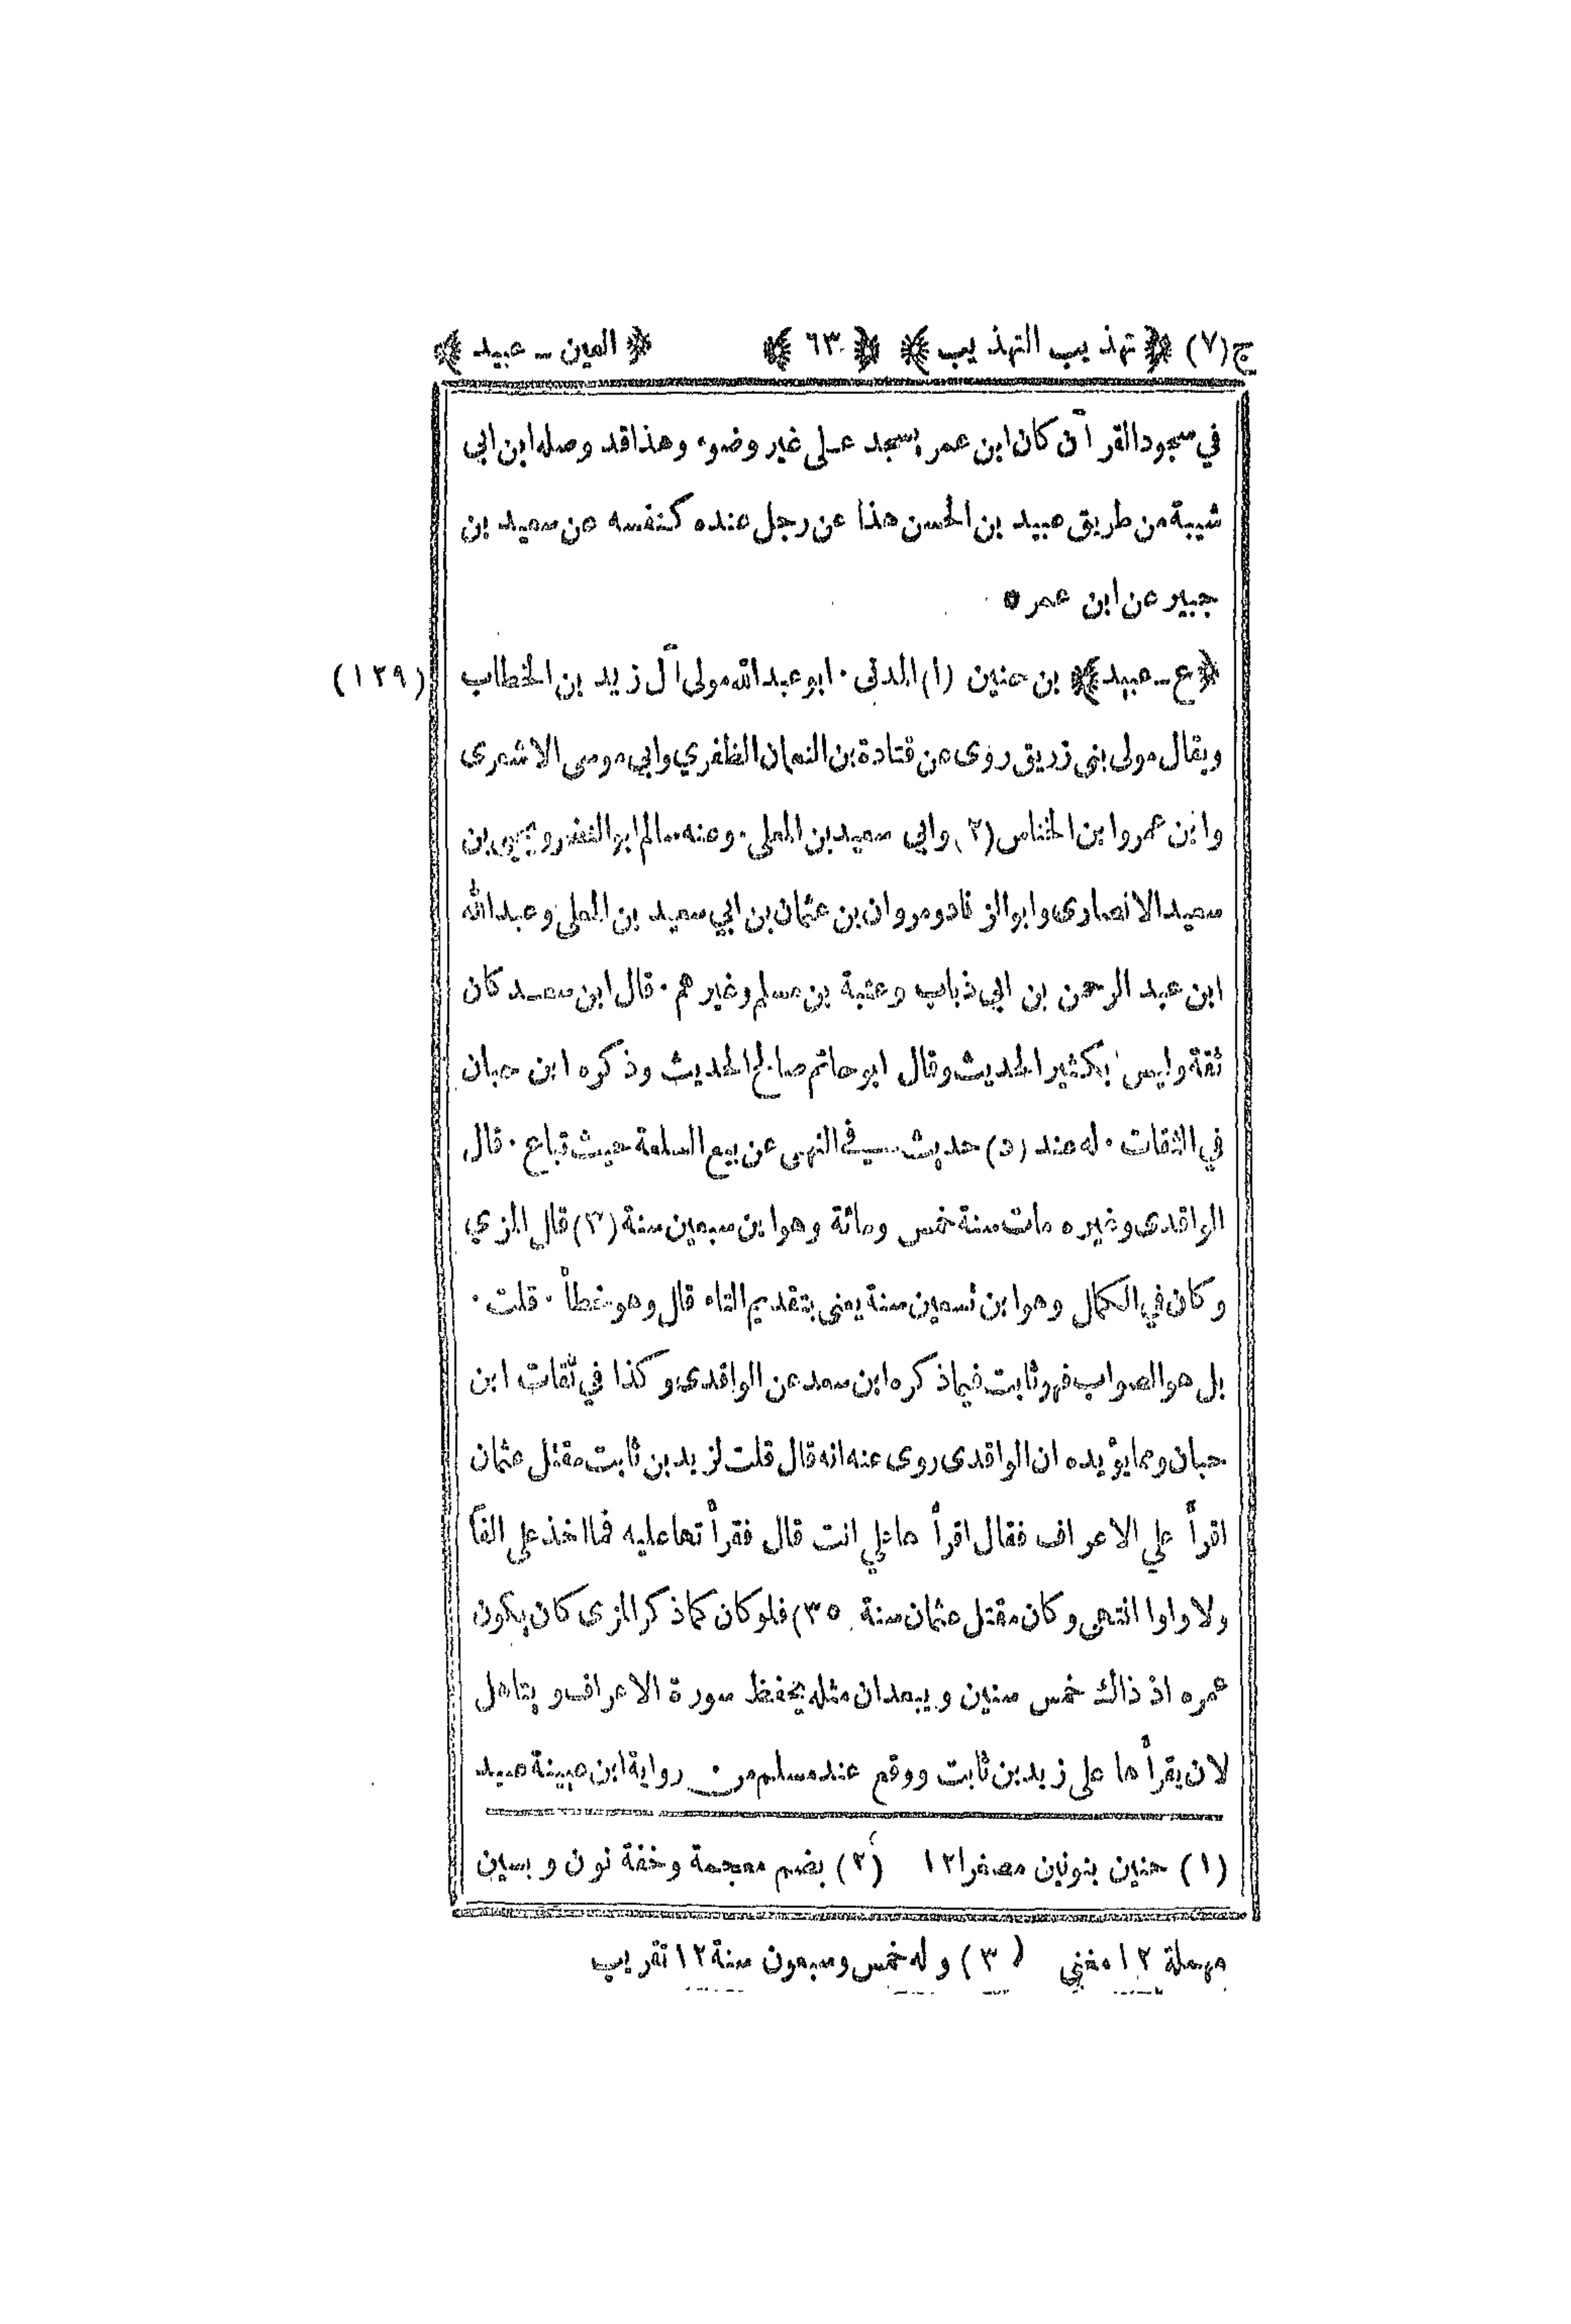 ج (٧) ﴿ تهذيب التهذيب ﴾ ﴿ ٦٣ ﴾ ﴿ العين ـ عبيد ﴾
في سجود القرآن كان ابن عمر يسجد على غير وضوء وهذا قد وصله ابن ابي
شيبة من طريق عبيد بن الحسن هذا عن رجل عنده كنفسه عن سعيد بن
جبير عن ابن عمر ٥
﴿ ع ـ عبيد ﴾ بن حنين (١) المدني ٠ ابو عبد الله مولى آل زيد بن الخطاب (١٢٩)
ويقال مولى بني زريق روى عن قتادة بن النعمان الظفري وابي موسى الاشعرى
وابن عمر وابن الخناس (٢) وابي سعيد بن المعلى ٠ وعنه سالم ابو النضر ويحيى بن
سعيد الانصارى وابو الزناد ومروان بن عثمان بن ابي سعيد بن المعلى وعبد الله
ابن عبد الرحمن بن ابي ذباب وعتبة بن مسلم وغيرهم ٠ قال ابن سعد كان
ثقة وليس بكثير الحديث وقال ابو حاتم صالح الحديث وذكره ابن حبان
في الثقات ٠ له عند (د) حديث في النهى عن بيع السلعة حيث تباع ٠ قال
الواقدى وغيره مات سنة خمس ومائة وهو ابن سبعين سنة (٣) قال المزي
وكان في الكمال وهو ابن تسعين سنة يعنى بتقديم التاء قال وهو خطأ ٠ قلت ٠
بل هو الصواب فهو ثابت فيما ذكره ابن سعد عن الواقدى وكذا في ثقات ابن
حبان ومما يؤيده ان الواقدى روى عنه انه قال قلت لزيد بن ثابت مقتل عثمان
اقرأ علي الاعراف فقال اقرأ ها علي انت قال فقرأتها عليه فما اخذ على الفاً
ولا واوا انتهى وكان مقتل عثمان سنة ٣٥) فلو كان كما ذكر المزى كان يكون
عمره اذ ذاك خمس سنين ويبعد ان مثله يحفظ سورة الاعراف ويتاهل
لان يقرأ ها على زيد بن ثابت ووقع عند مسلم من رواية ابن عيينة عبيد
(١) حنين بنونين مصغرا ١٢ (٢) بضم معجمة وخفة نون وبسين
مهملة ١٢ مغني (٣) وله خمس وسبعون سنة ١٢ تقريب